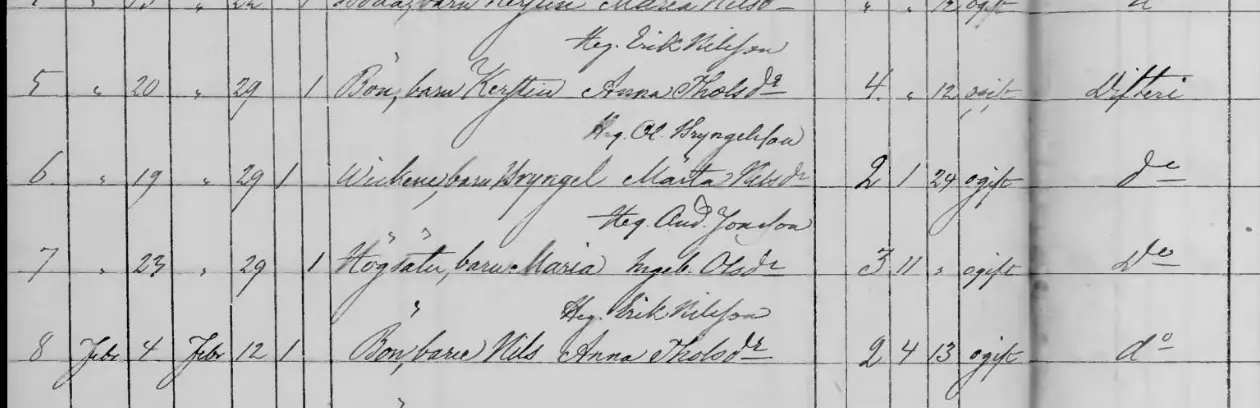 barn Kerstin Maria Nilsd " " 12 ogift d
Heg. Erik Nilsson
5 " 20 " 29 1 Bön, barn Kerstin Anna Tholsdr 4 " 12 ogift Difteri
Heg. Ol. Bryngelsson
6 " 19 " 29 1 barn Bryngel Märta Nilsdr 2 1 24 ogift do
Heg. And. Jonsson
7 " 23 " 29 1 Högsäter, barn Maria Ingeb. Olsdr 3 11 " ogift Do
Heg. Erik Nilsson
8 Febr 4 Febr 12 1 Bön, barn Nils Anna Tholsdr 2 4 13 ogift do